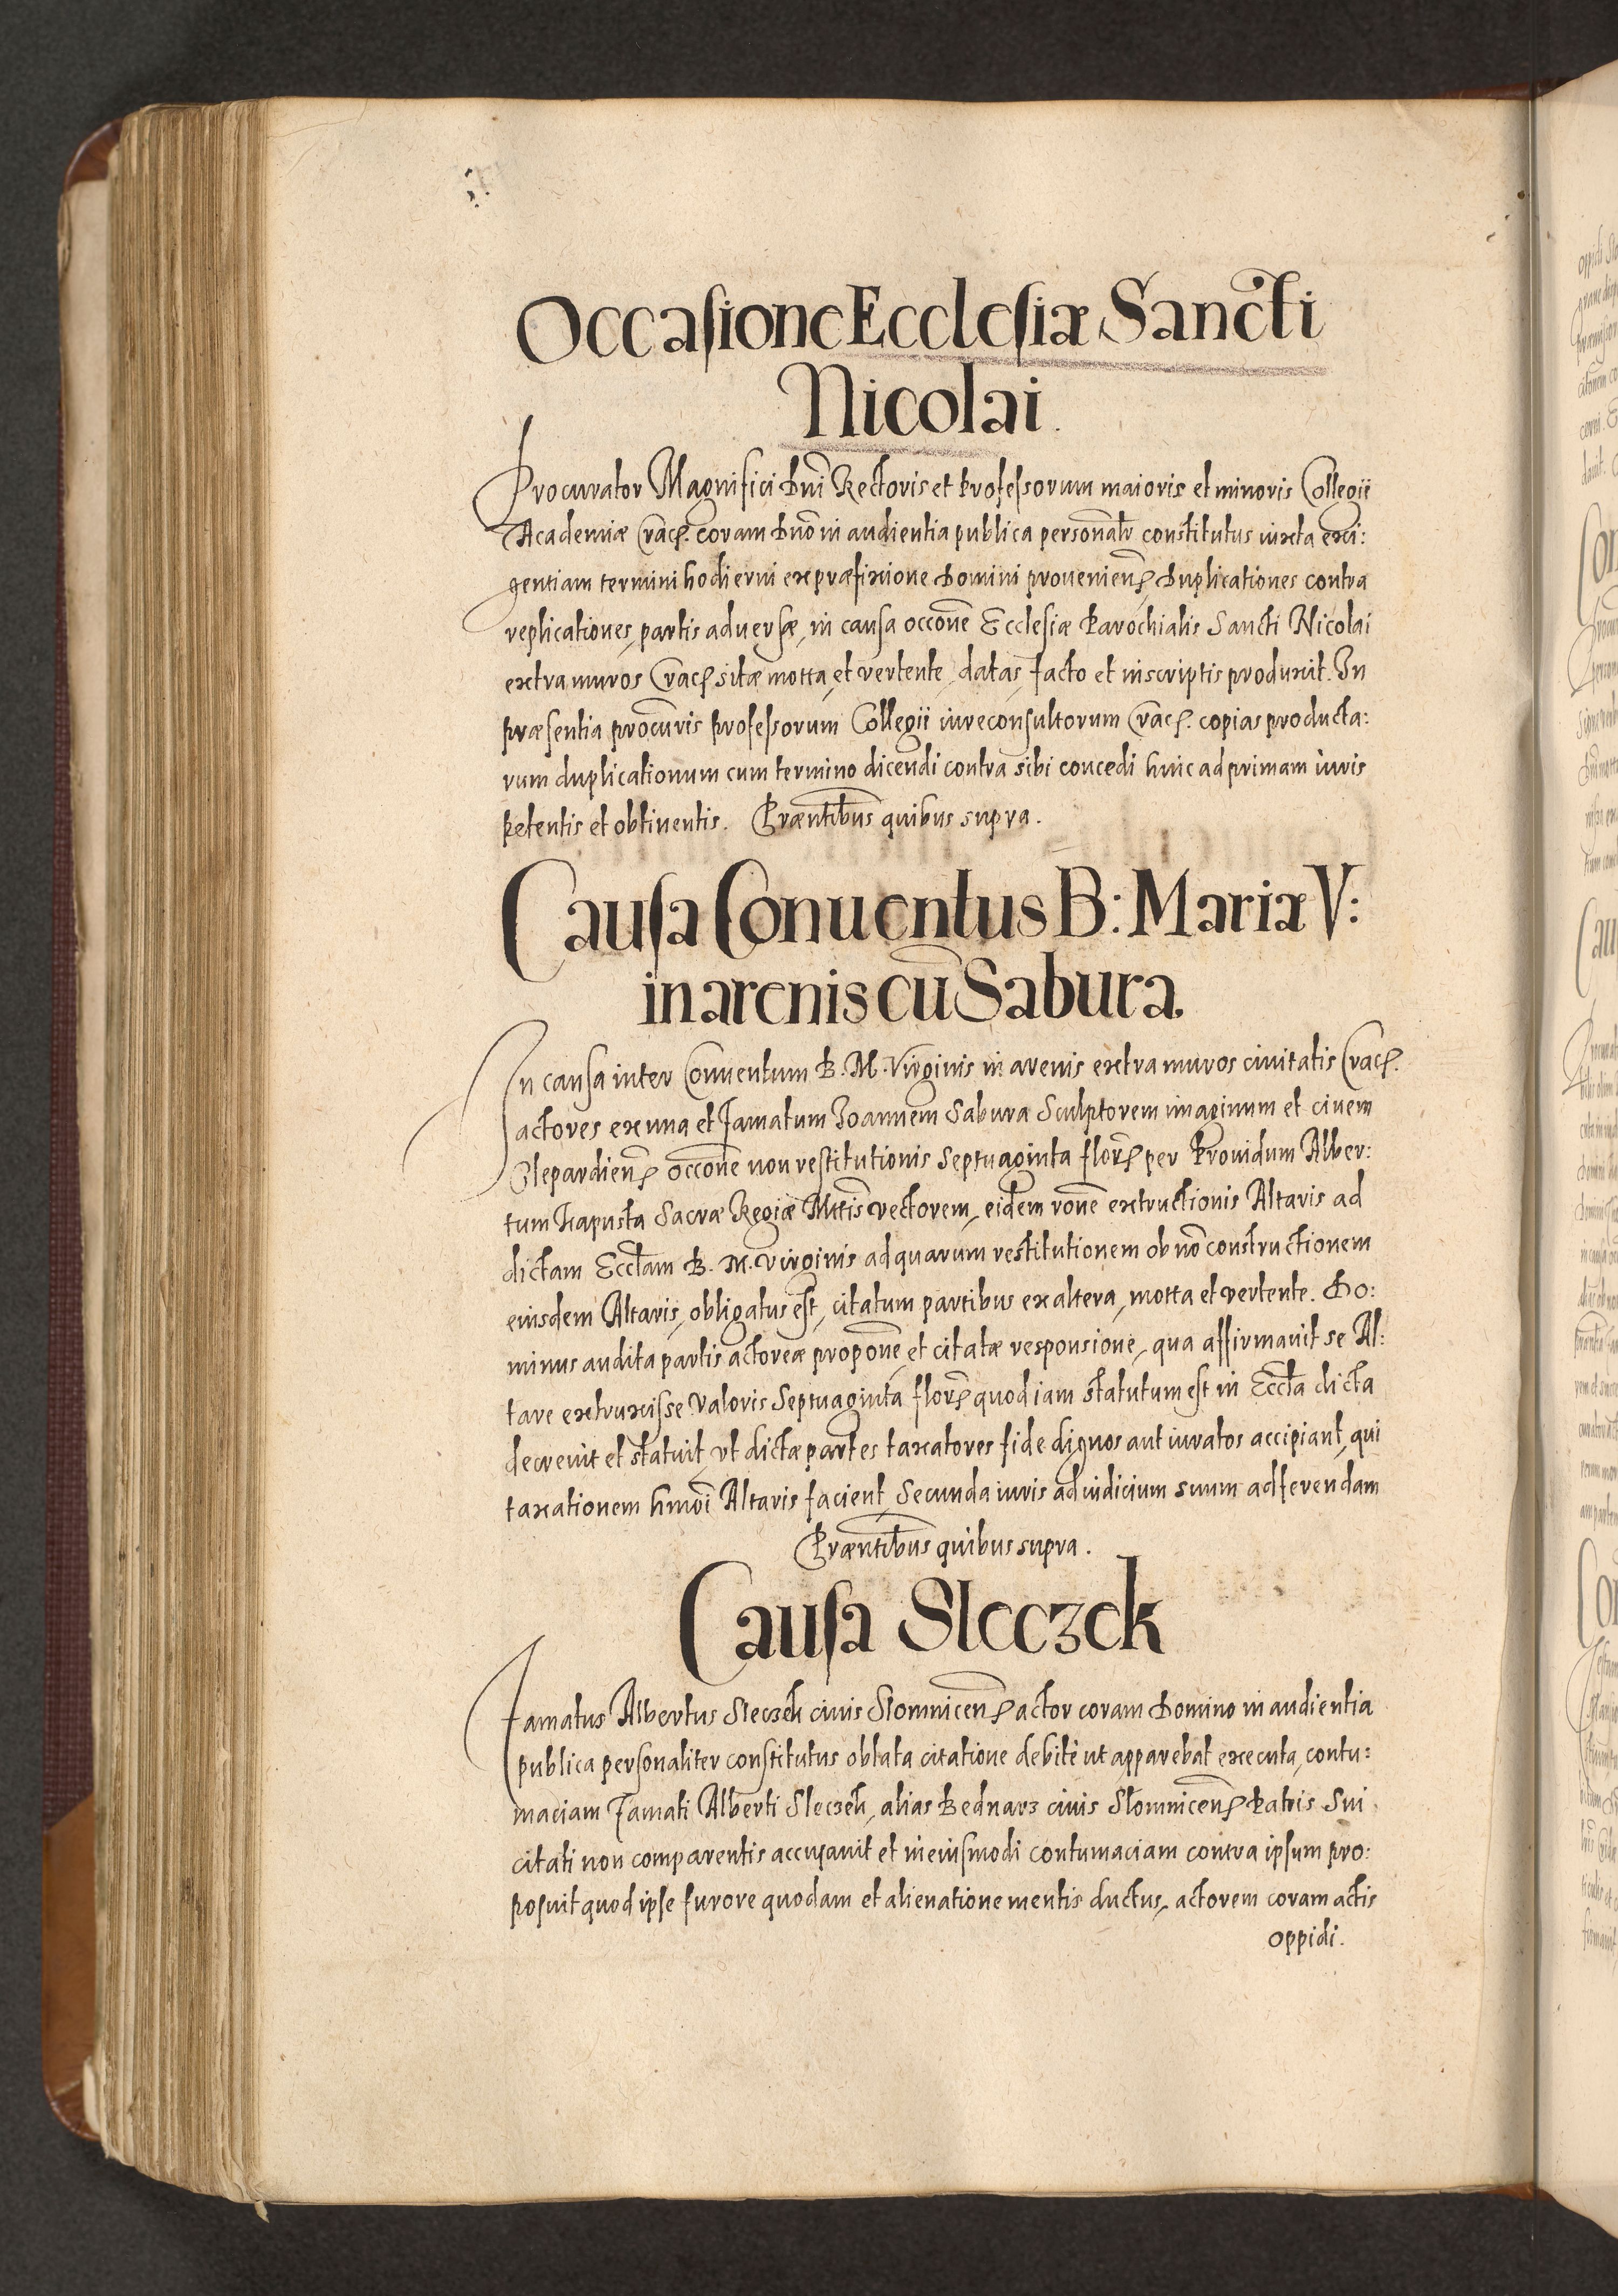 Occasione Ecclesiæ Sancti
Nicolai.
Procurator Magnifici Dnī Rectoris et Professorum maioris et minoris Collegii
Academiæ Crac. coram Dno in audientia publica personalr constitutus iuxta exi:
gentiam termini hodierni ex præfixione Domini proueniens Duplicationes contra
replicationes partis aduersæ, in causa occone Ecclesiæ Parochialis Sancti Nicolai
extra muros Crac. sitæ motta, et vertente, datas, facto et in scriptis produxit. In
præsentia procuris professorum Collegii iureconsultorum Crac. copias producta:
rum duplicationum cum termino dicendi contra sibi concedi hinc ad primam iuris
petentis et obtinentis. Præntibus quibus supra.
Causa Conuentus B: Mariæ V:
in arenis cū Sabura
In causa inter Conuentum B. M. Virginis in arenis extra muros ciuitatis Crac.
actores ex una et famatum Ioannem Sabura Sculptorem imaginum et ciuem
Clepardiens occone non restitutionis Septuaginta flor. per Prouidum Alber:
tum Kapusta Sacræ Regiæ Mttis vectorem, eidem rone extructionis Altaris ad
dictam Ecctam B. M. Virginis ad quarum restitutionem ob no constructionem
eiusdem Altaris, obligatus est, citatum partibus ex altera, motta et vertente. Do:
minus audita partis actoreæ propone, et citatæ responsione, qua affirmauit se Al:
tare extruxisse valoris Septuaginta flor. quod iam statutum est in Eccta dicta
decreuit et statuit, vt dictæ partes taxatores fide dignos aut iuratos accipiant, qui
taxationem hmoi Altaris facient, Secunda iuris ad iudicium suum adferendam
Præntibus quibus supra.
Causa Sleczek
Famatus Albertus Sleczek ciuis Slomnicens actor coram Domino in audientia
publica personaliter constitutus oblata citatione debite ut apparebat executa, contu:
maciam Famati Alberti Sleczek, alias Bednarz ciuis Slomnicens Patris Sui
citati non comparentis accusauit et in eiusmodi contumaciam contra ipsum pro:
posuit quod ipse furore quodam et alienatione mentis ductus, actorem coram actis
oppidi.